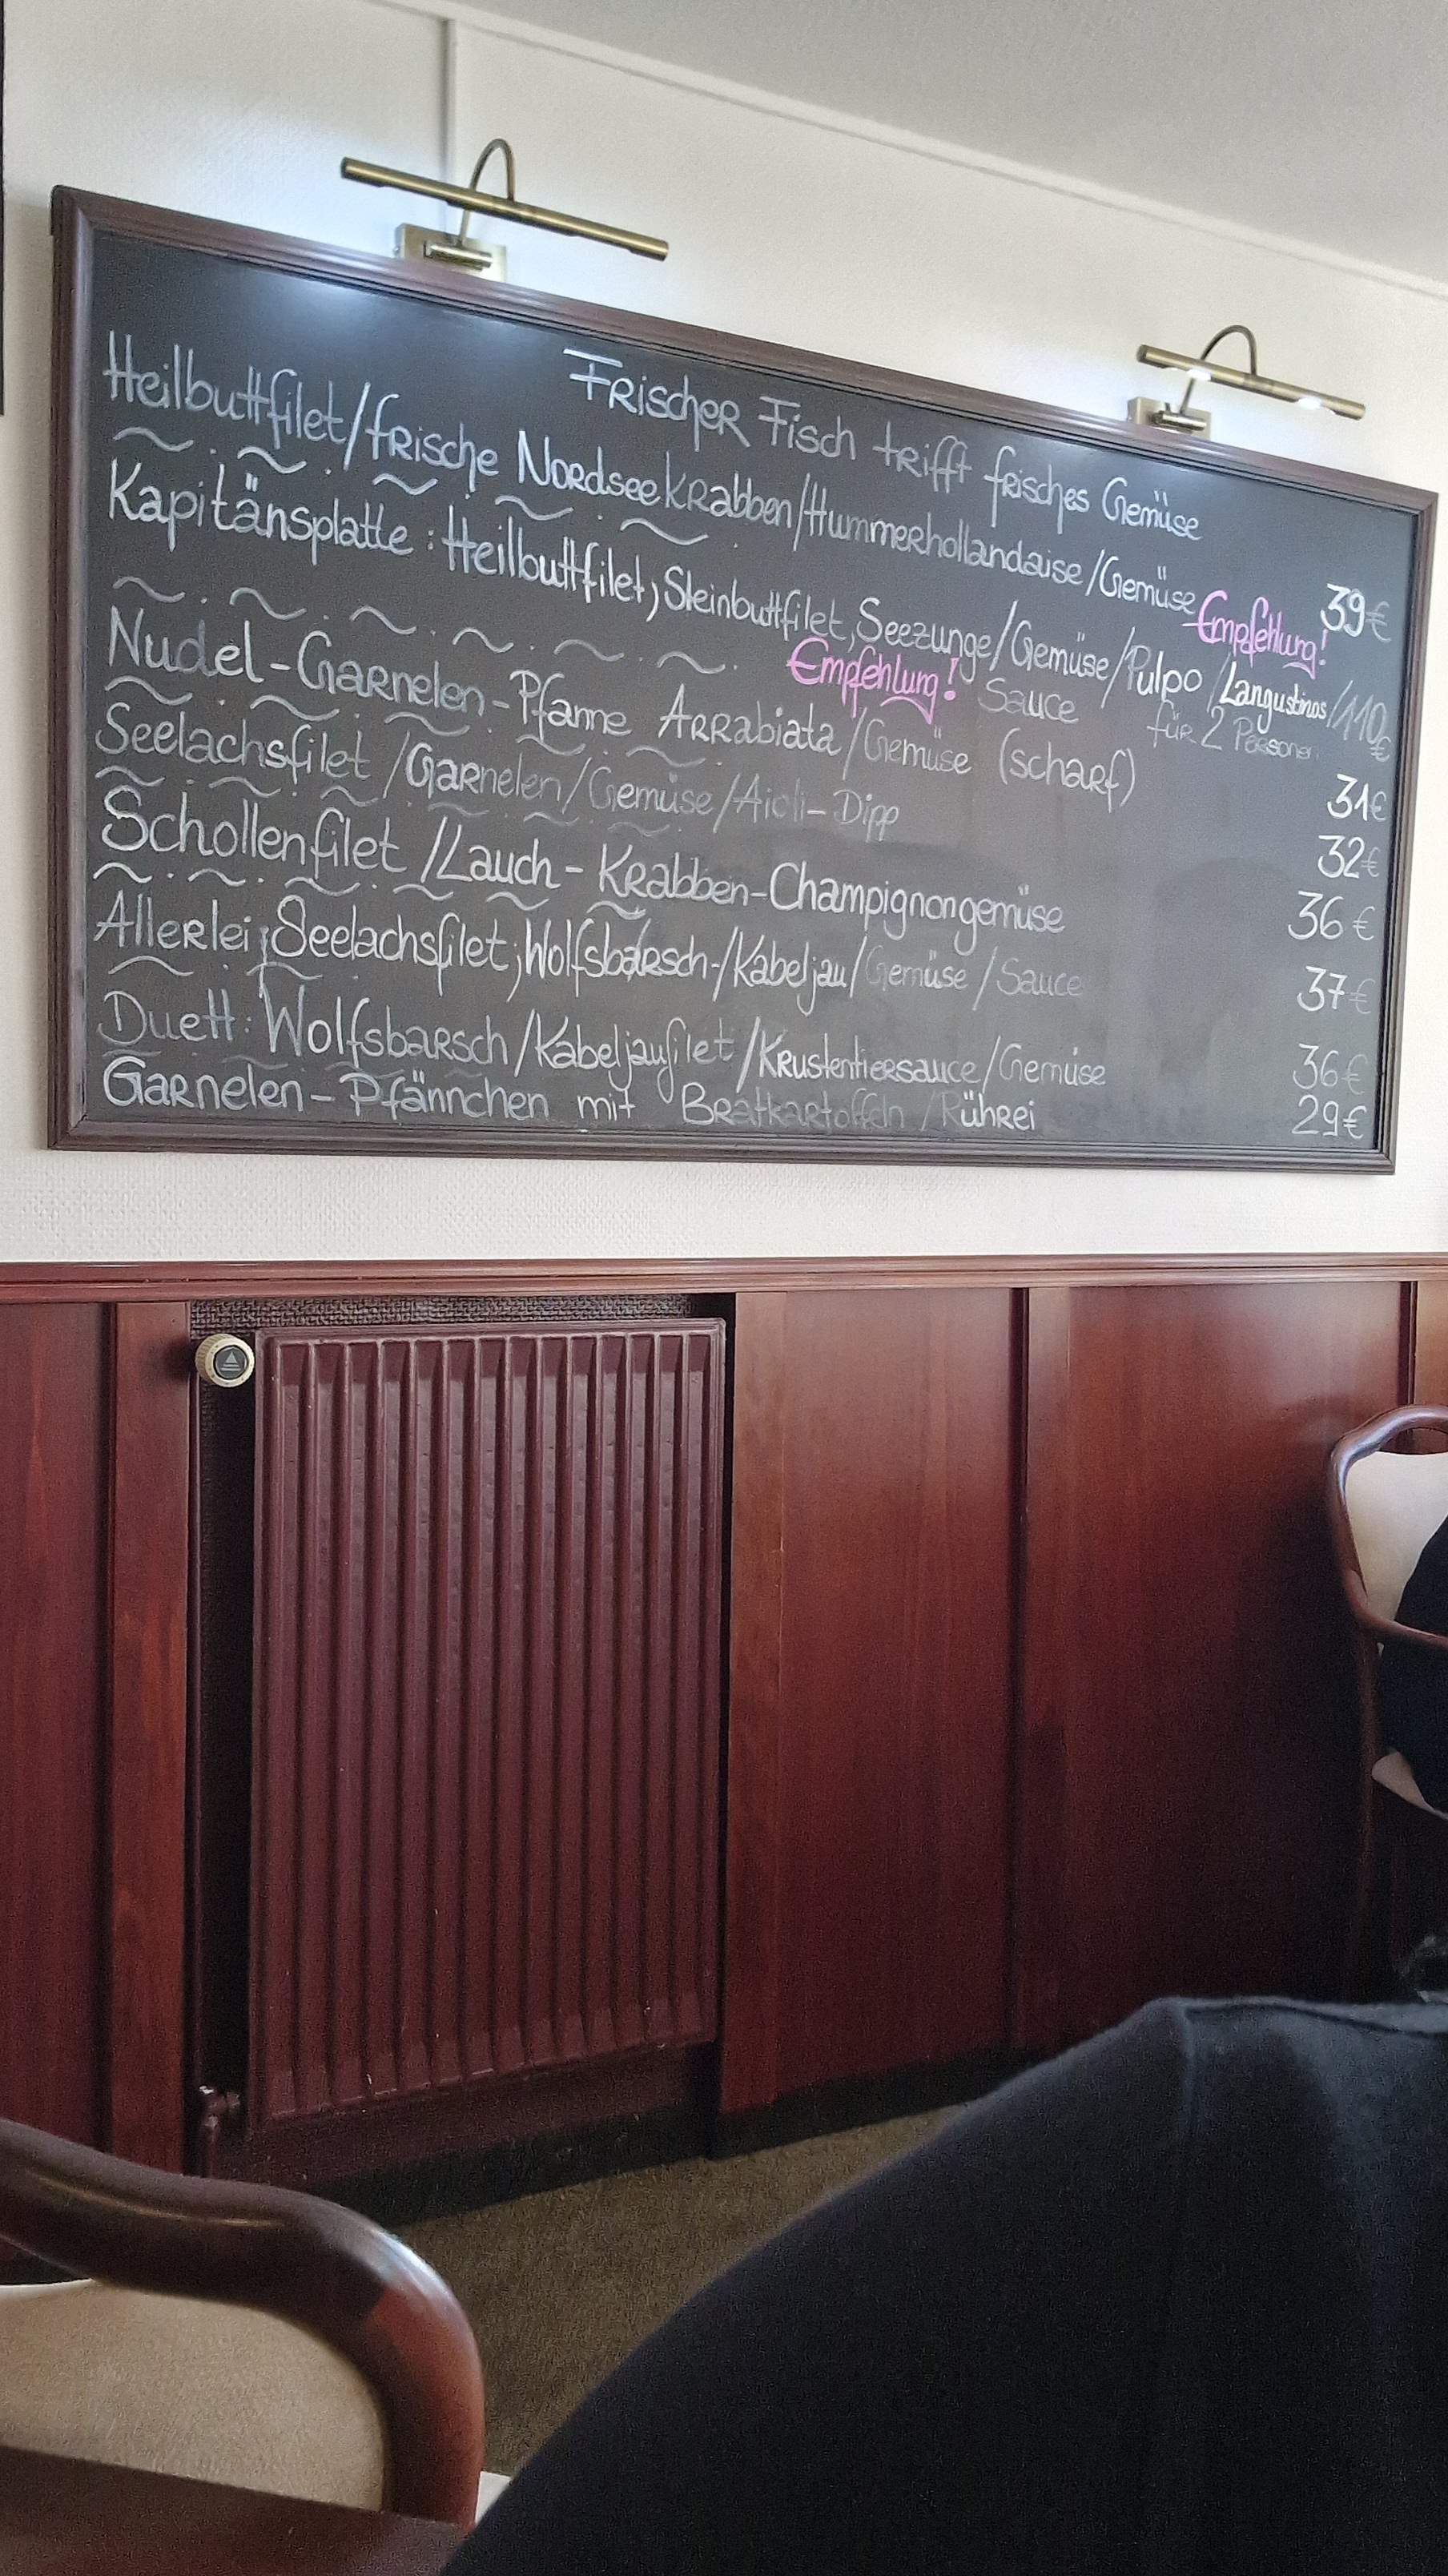 Frischer Fisch trifft frisches Gemüse
Heilbuttfilet/frische Nordseekrabben/Hummerhollandaise/Gemüse 39€
Empfehlung!
Kapitänsplatte: Heilbuttfilet, Steinbuttfilet, Seezunge/Gemüse/Pulpo/Langustinos/110€
Empfehlung! Sauce für 2 Personen
Nudel-Garnelen-Pfanne Arrabiata/Gemüse (scharf) 31€
Seelachsfilet/Garnelen/Gemüse/Aioli-Dipp 32€
Schollenfilet/Lauch-Krabben-Champignongemüse 36€
Allerlei; Seelachsfilet; Wolfsbarsch-/Kabeljau/Gemüse/Sauce 37€
Duett: Wolfsbarsch/Kabeljaufilet/Krustentiersauce/Gemüse 36€
Garnelen-Pfännchen mit Bratkartoffeln/Rührei 29€